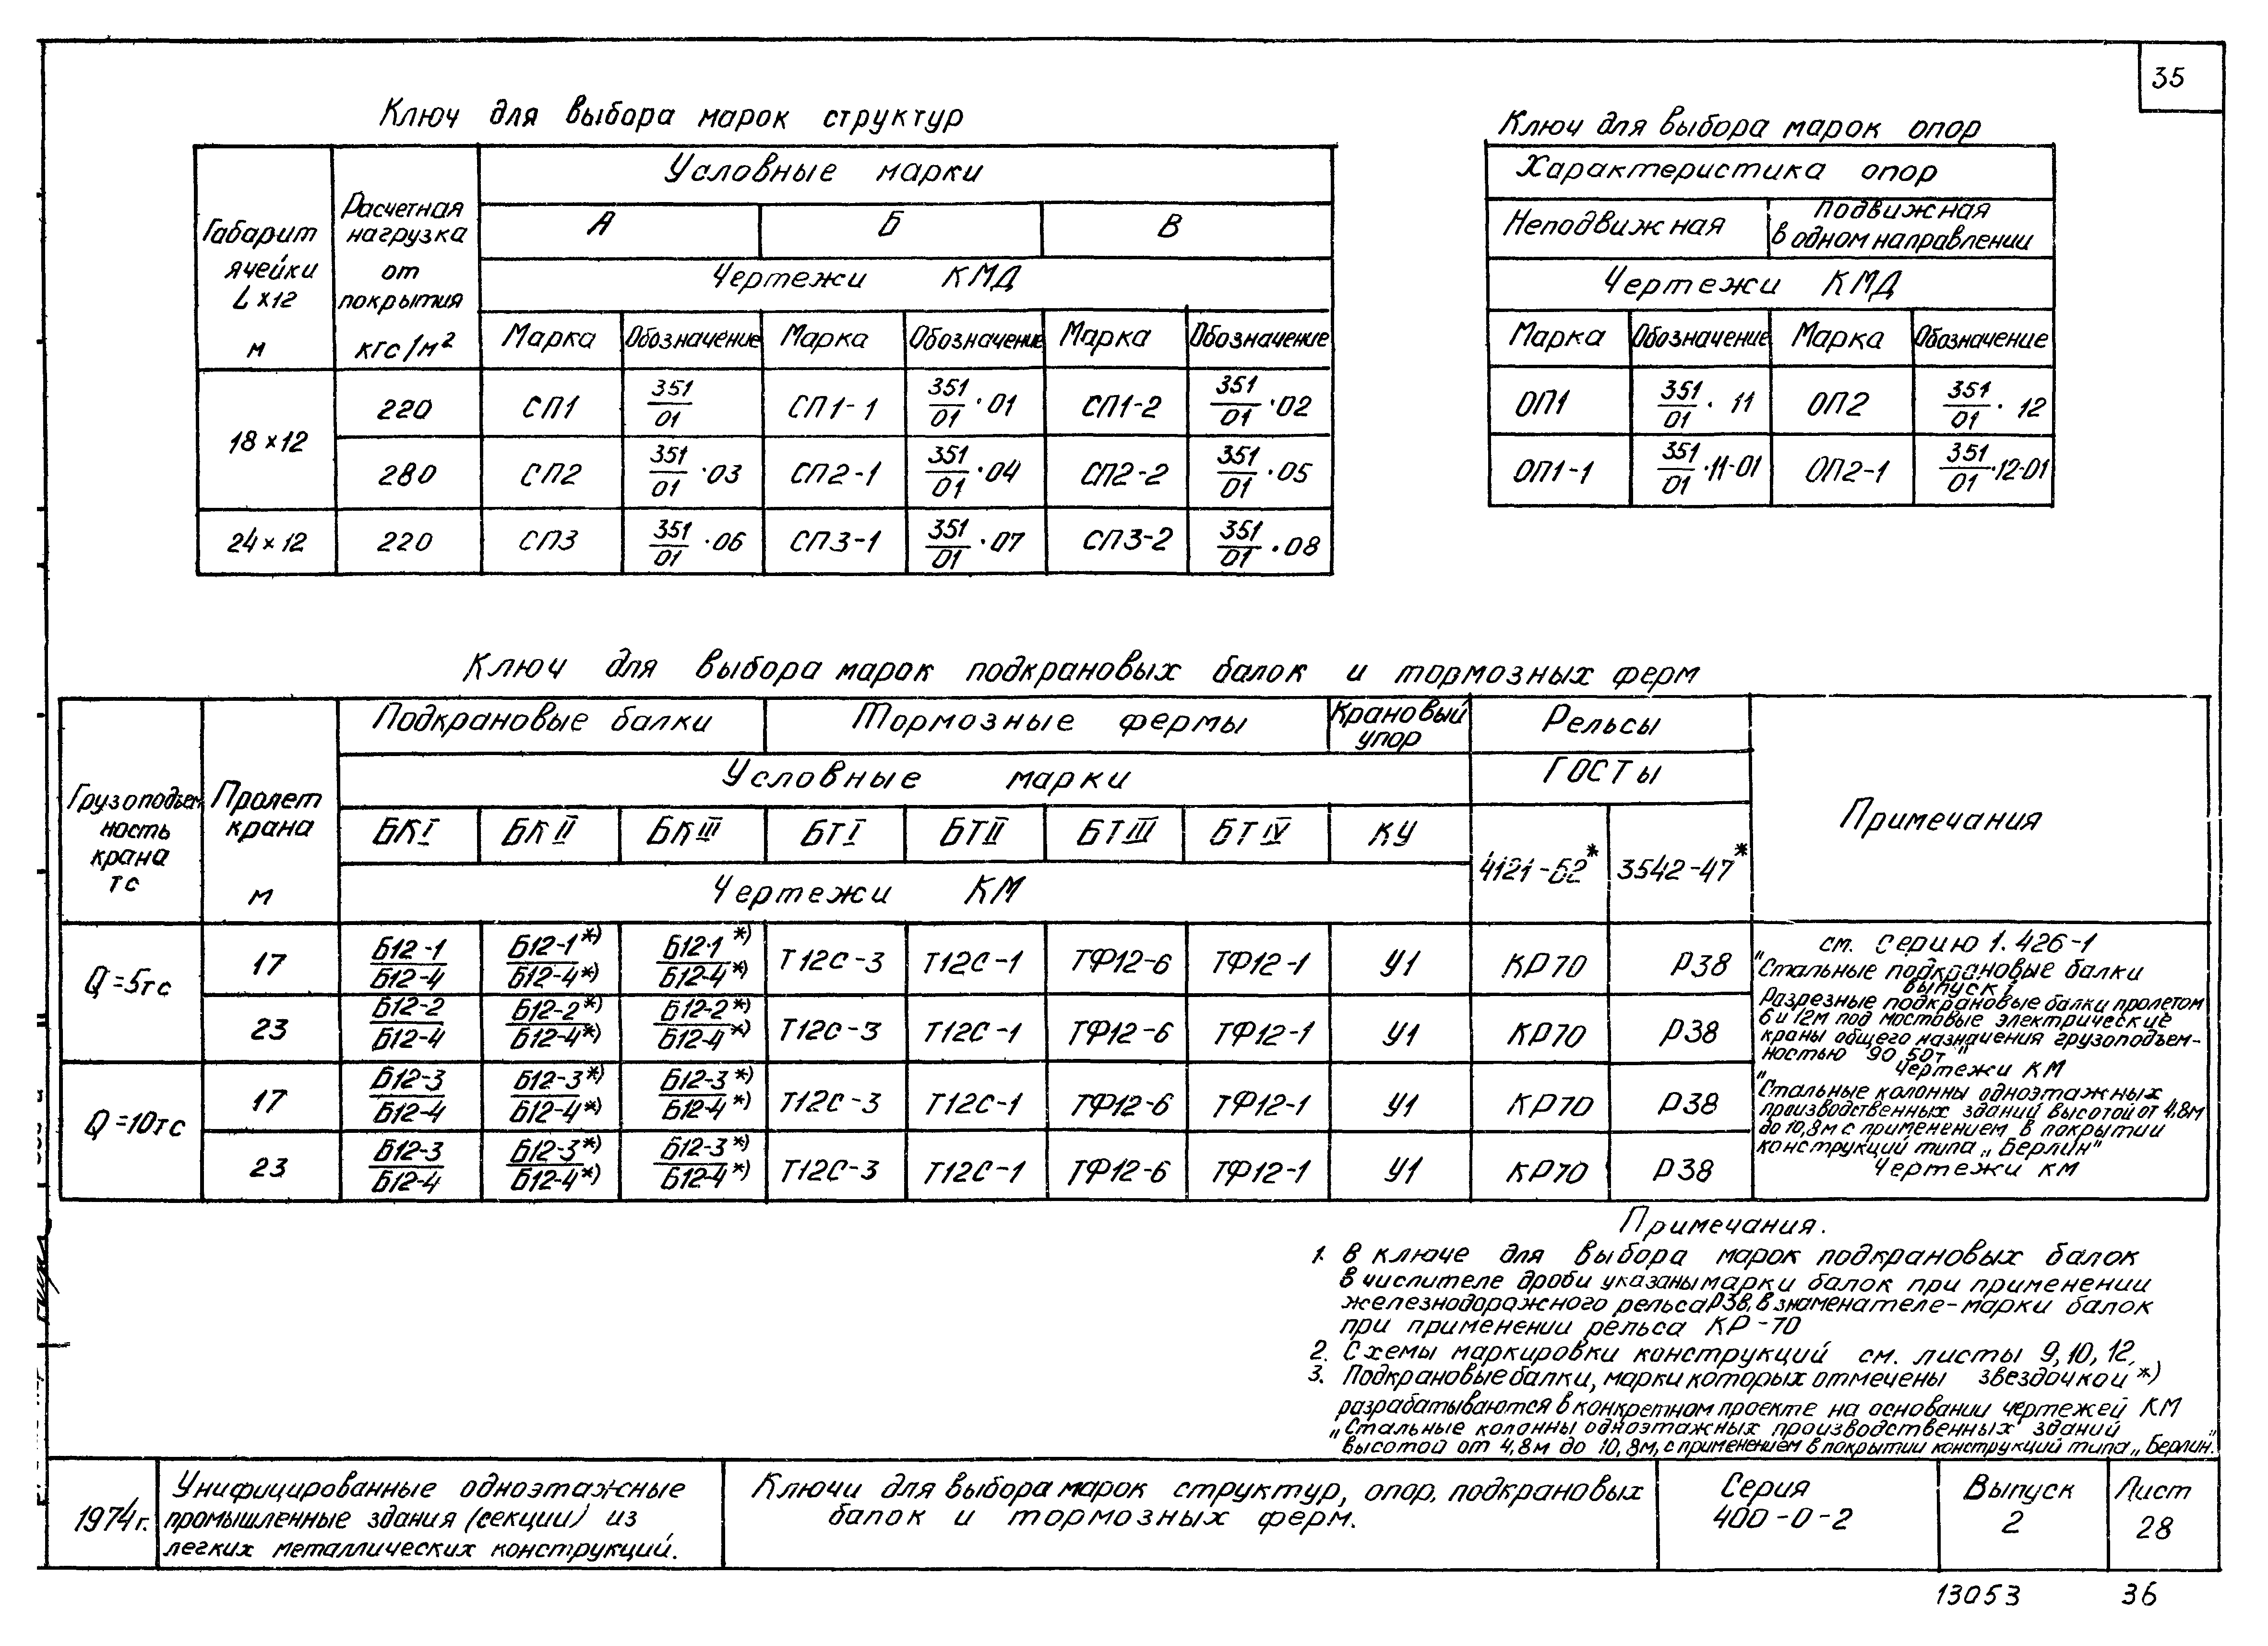 35
Ключ для выбора марок структур
Габарит ячейки L×12 м | Расчетная нагрузка от покрытия кгс/м² | Условные марки
А | Б | В
Чертежи КМД
Марка | Обозначение | Марка | Обозначение | Марка | Обозначение
18×12 | 220 | СП1 | 351/01 | СП1-1 | 351/01 · 01 | СП1-2 | 351/01 · 02
280 | СП2 | 351/01 · 03 | СП2-1 | 351/01 · 04 | СП2-2 | 351/01 · 05
24×12 | 220 | СП3 | 351/01 · 06 | СП3-1 | 351/01 · 07 | СП3-2 | 351/01 · 08
Ключ для выбора марок опор
Характеристика опор
Неподвижная | Подвижная в одном направлении
Чертежи КМД
Марка | Обозначение | Марка | Обозначение
ОП1 | 351/01 · 11 | ОП2 | 351/01 · 12
ОП1-1 | 351/01 · 11-01 | ОП2-1 | 351/01 · 12-01
Ключ для выбора марок подкрановых балок и тормозных ферм
Грузоподъемность крана тс | Пролет крана м | Подкрановые балки | Тормозные фермы | Крановый упор | Рельсы | Примечания
Условные марки | ГОСТы
БК I | БК II | БК III | БТ I | БТ II | БТ III | БТ IV | КУ | 4121-62* | 3542-47*
Чертежи КМ
Q=5тс | 17 | Б12-1/Б12-4 | Б12-1*)/Б12-4*) | Б12-1*)/Б12-4*) | Т12С-3 | Т12С-1 | ТФ12-6 | ТФ12-1 | У1 | КР70 | Р38
23 | Б12-2/Б12-4 | Б12-2*)/Б12-4*) | Б12-2*)/Б12-4*) | Т12С-3 | Т12С-1 | ТФ12-6 | ТФ12-1 | У1 | КР70 | Р38
Q=10тс | 17 | Б12-3/Б12-4 | Б12-3*)/Б12-4*) | Б12-3*)/Б12-4*) | Т12С-3 | Т12С-1 | ТФ12-6 | ТФ12-1 | У1 | КР70 | Р38
23 | Б12-3/Б12-4 | Б12-3*)/Б12-4*) | Б12-3*)/Б12-4*) | Т12С-3 | Т12С-1 | ТФ12-6 | ТФ12-1 | У1 | КР70 | Р38
см. серию 1.426-1
"Стальные подкрановые балки
выпуск 1
Разрезные подкрановые балки пролетом
6 и 12м под мостовые электрические
краны общего назначения грузоподъем-
ностью до 50т"
Чертежи КМ
"Стальные колонны одноэтажных
производственных зданий высотой от 4,8м
до 10,8м с применением в покрытии
конструкций типа „Берлин"
Чертежи КМ
Примечания.
1. В ключе для выбора марок подкрановых балок
в числителе дроби указаны марки балок при применении
железнодорожного рельса Р38, в знаменателе-марки балок
при применении рельса КР-70
2. Схемы маркировки конструкций см. листы 9, 10, 12.
3. Подкрановые балки, марки которых отмечены звездочкой *)
разрабатываются в конкретном проекте на основании чертежей КМ
„Стальные колонны одноэтажных производственных зданий
высотой от 4,8м до 10,8м, с применением в покрытии конструкций типа „Берлин."
1974г.
Унифицированные одноэтажные
промышленные здания (секции) из
легких металлических конструкций.
Ключи для выбора марок структур, опор, подкрановых
балок и тормозных ферм.
Серия
400-0-2
Выпуск
2
Лист
28
13053 36